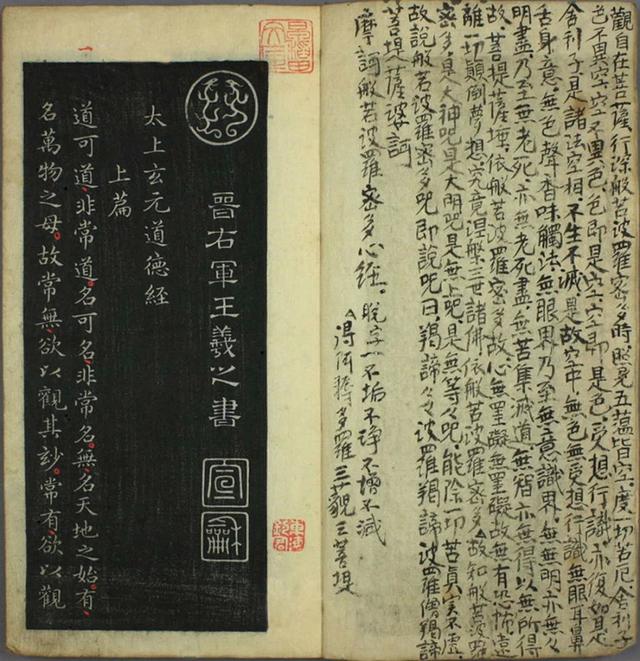 觀自在菩薩。行深般若波羅密多時。照見五蘊皆空。度一切苦厄。舍利子
色不異空。空不異色。色即是空。空即是色。受想行識。亦復如是。
舍利子。是諸法空相。不生不滅。是故空中。無色無受想行識。無眼耳鼻
舌身意。無色聲香味觸法。無眼界乃至無意識界。無無明亦無々
明盡乃至無老死。亦無老死盡。無苦集滅道無智亦無得以無所得
故。菩提薩埵。依般若波羅密多故。心無罣礙無罣礙故無有恐怖遠
離一切顛倒夢想究竟涅槃三世諸佛依般若波羅密多△故知般若波羅
密多是大神呪是大明呪是無上呪是無等々呪能除一切苦真實不虛
故說般若波羅密多呪即說呪曰羯諦々々波羅羯諦波羅僧羯諦
菩提薩婆訶
摩訶般若波羅密多心經。脫字一不垢不淨不增不減
△得阿耨多羅三藐三菩提
晉右軍王羲之書
宣
龢
太上玄元道德經
上篇
道可道。非常道。名可名。非常名。無名天地之始。有
名萬物之母。故常無欲以觀其妙。常有欲以觀
一